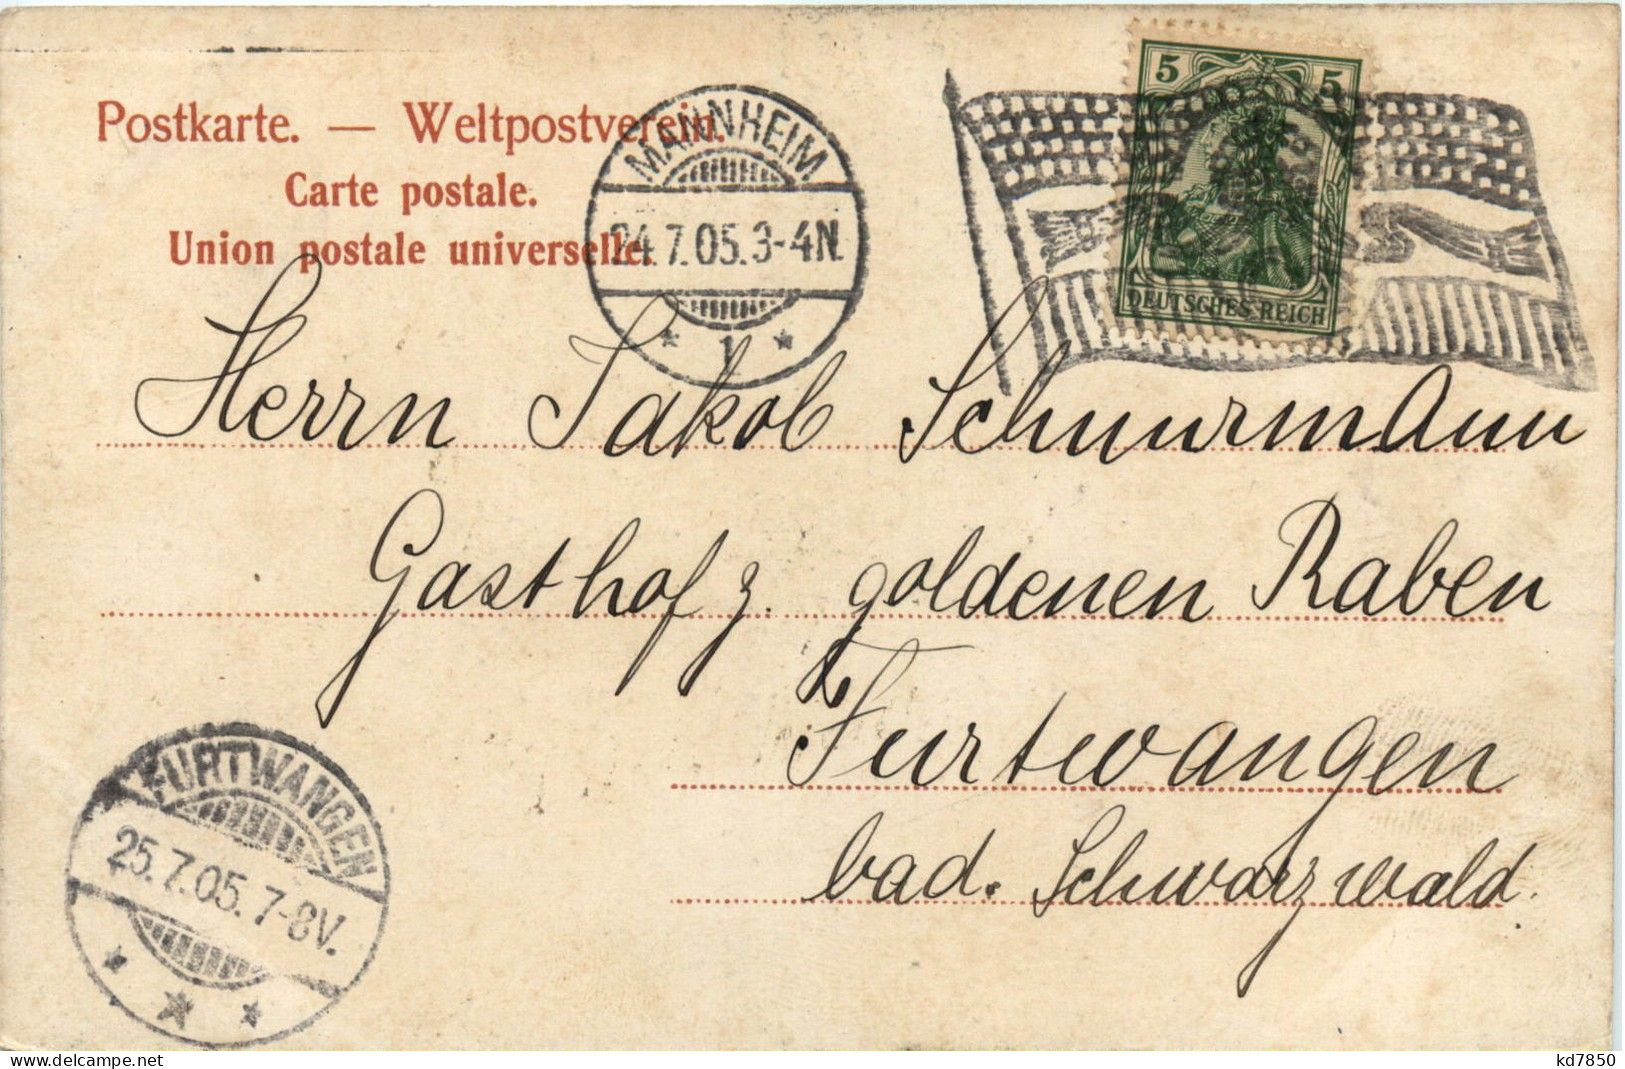 Postkarte. — Weltpostverein.
Carte postale.
Union postale universelle.
MANNHEIM
24.7.05.3-4N.
* 1 *
5 5
DEUTSCHES REICH
Herrn Jakob Schnurmann
Gasthof z. goldenen Raben
Furtwangen
bad. Schwarzwald.
FURTWANGEN
25.7.05.7-8V.
* * *
delcampe.net
kd7850